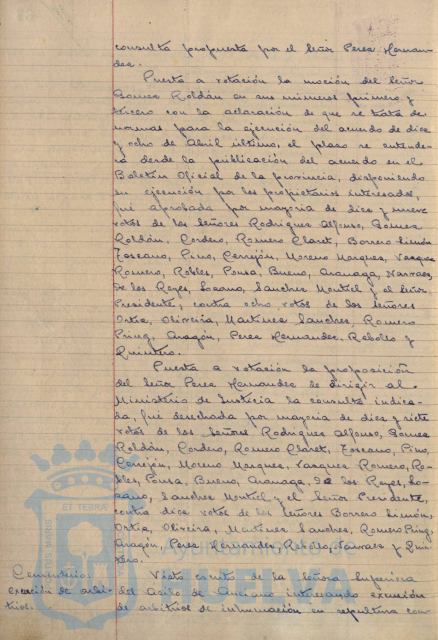 consulta propuesta por el Señor Perez Hernan-
dez.
Puesta a votación la moción del Señor
Gomez Roldán en sus números primero y
tercero con la aclaración de que se trata de
normas para la ejecución del acuerdo de diez
y ocho de Abril último, el plazo se entende-
rá desde la publicación del acuerdo en el
Boletin Oficial de la provincia, disponiendo
su ejecución por los propietarios interesados,
fué aprobada por mayoria de diez y nueve
votos de los señores Rodriguez Alfonso, Gomez
Roldán, Cordero, Romero Claret, Borrero Limón,
Toscano, Pino, Cerrejón, Moreno Marquez, Vazquez
Romero, Robles, Pousa, Bueno, Aranaga, Narvaez,
De los Reyes, Lozano, Sanchez Montiel y el Señor
Presidente, contra ocho votos de los señores
Ortiz, Oliveira, Martinez Sanchez, Romero
Puig, Aragón, Perez Hernandez, Rebollo y
Quintero.
Puesta a votación la proposición
del Señor Perez Hernandez de dirigir al
Ministerio de Justicia la consulta indica-
da, fué desechada por mayoria de diez y siete
votos de los Señores Rodriguez Alfonso, Gomez
Roldán, Cordero, Romero Claret, Toscano, Pino,
Cerrejón, Moreno Marquez, Vazquez Romero, Ro-
bles, Pousa, Bueno, Aranaga, De los Reyes, Lo-
zano, Sanchez Montiel y el Señor Presidente,
contra diez votos de los Señores Borrero Limón,
Ortiz, Oliveira, Martinez Sanchez, Romero Puig,
Aragón, Perez Hernandez, Rebollo, Narvaez y Quin-
tero.
Cementerios
exención de arbi-
trios.
Visto escrito de la Señora Superiora
del Asilo de Ancianos interesando exención
de arbitrios de inhumación en sepultura con-
ET TERRA
HUELVA